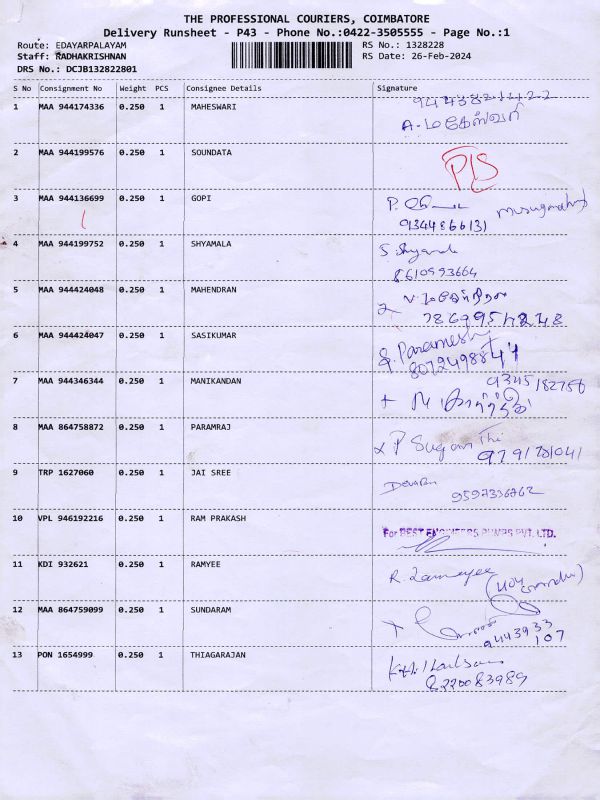 THE PROFESSIONAL COURIERS, COIMBATORE
Delivery Runsheet - P43 - Phone No.:0422-3505555 - Page No.:1
Route: EDAYARPALAYAM RS No.: 1328228
Staff: RADHAKRISHNAN RS Date: 26-Feb-2024
DRS No.: DCJB132822801
S No Consignment No Weight PCS Consignee Details Signature
1 MAA 944174336 0.250 1 MAHESWARI
A. மகேஸ்வரி
2 MAA 944199576 0.250 1 SOUNDATA
3 MAA 944136699 0.250 1 GOPI P.
9344866131
4 MAA 944199752 0.250 1 SHYAMALA S.
8610993664
5 MAA 944424048 0.250 1 MAHENDRAN
6 MAA 944424047 0.250 1 SASIKUMAR
Paramesh
7 MAA 944346344 0.250 1 MANIKANDAN
8 MAA 864758872 0.250 1 PARAMRAJ P Suganthi
9 TRP 1627060 0.250 1 JAI SREE
9597336762
10 VPL 946192216 0.250 1 RAM PRAKASH For BEST ENGINEERS PUMPS PVT. LTD.
11 KDI 932621 0.250 1 RAMYEE R.
12 MAA 864759099 0.250 1 SUNDARAM
9443933
107
13 PON 1654999 0.250 1 THIAGARAJAN
8220083989